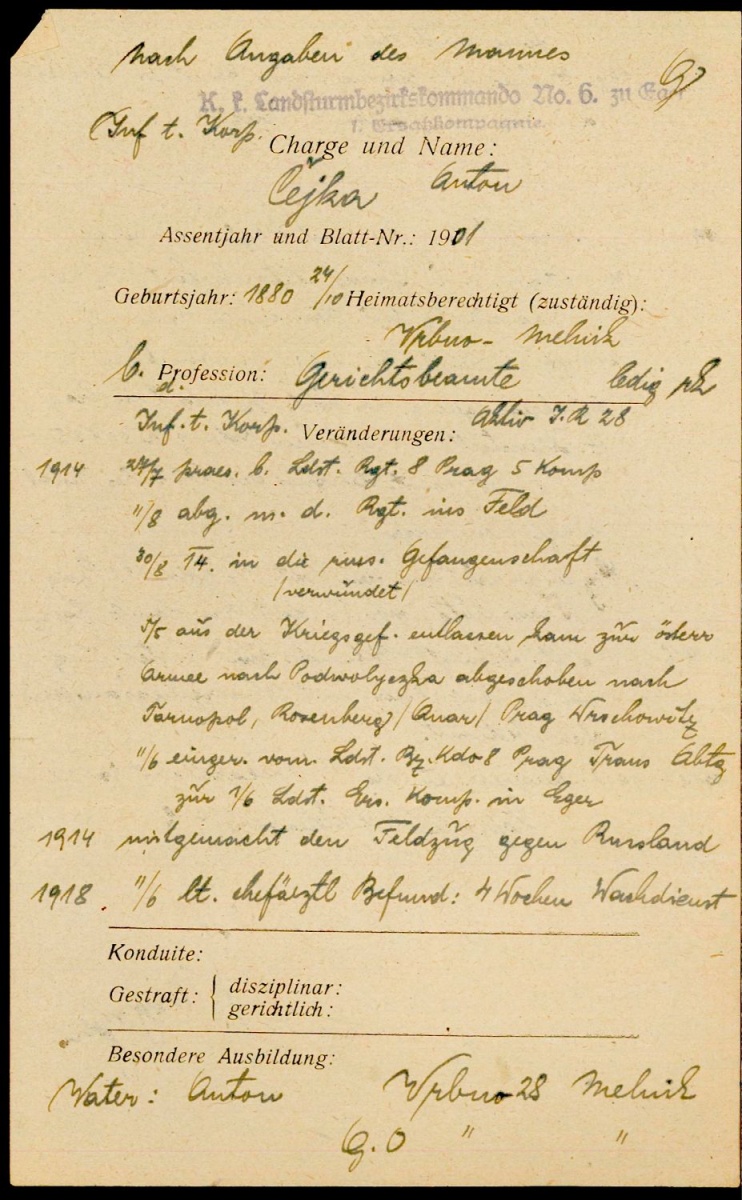 nach Angaben des Mannes
K. k. Landsturmbezirkskommando No. 6. zu Eger
1. Ersatzkompagnie.
Inf. t. Korp.
Charge und Name:
Čejka Anton
Assentjahr und Blatt-Nr.: 1901
Geburtsjahr: 1880 24/10 Heimatsberechtigt (zuständig):
Vrbno - Melnik
b. d. Profession: Gerichtsbeamte ledig rk
Inf. t. Korp. Veränderungen: Aktiv I. R 28
1914 27/7 praes. b. Ldst. Rgt. 8 Prag 5 Komp
11/8 abg. m. d. Rgt. ins Feld
30/8 14. in die russ. Gefangenschaft
/verwundet/
5/5 aus der Kriegsgef. entlassen kam zur österr
Armee nach Podwolyczka abgeschoben nach
Tarnopol, Rosenberg /Quar/ Prag Wrschowitz
11/6 einger. vom Ldst. Bz. Kdo 8 Prag Trans Abtg
zur 1/6 Ldst. Ers. Komp. in Eger
1914 mitgemacht den Feldzug gegen Russland
1918. 11/6 lt. chefärztl Befund: 4 Wochen Wachdienst
Konduite:
Gestraft: { disziplinar:
gerichtlich:
Besondere Ausbildung:
Vater: Anton Vrbno 28 Melnik
G. O " "